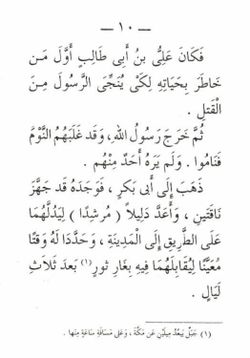 — ١٠ —
فَكَانَ عَلِىُّ بنُ أَبِى طَالِبٍ أَوَّلَ مَن
خَاطَرَ بِحَيَاتِهِ لِكَىْ يُنَجِّىَ الرَّسُولَ مِنَ
القَتلِ .
ثُمَّ خَرَجَ رَسُولُ اللهِ، وَقَد غَلَبَهُمُ النَّوْمُ
فَنَامُوا . وَلَم يَرَهُ أَحَدٌ مِنْهُم .
ذَهَبَ إِلَى أَبِى بَكرٍ ، فَوَجَدَهُ قَد جَهَّزَ
نَاقَتَينِ ، وَأَعَدَّ دَلِيلاً ( مُرشِدًا ) لِيَدُلَّهُمَا
عَلَى الطَّرِيقِ إِلَى المَدِينَةِ ، وَحَدَّدَا لَهُ وَقتًا
مُعَيَّنًا لِيُقَابِلَهُمَا فِيهِ بِغَارِ ثَورٍ(١) بَعدَ ثَلَاثِ
لَيَالٍ .
(١) جَبَلٌ يَبعُدُ مِيلَينِ عَن مَكَّةَ ، وَعَلَى مَسَافَةِ سَاعَةٍ مِنهَا .